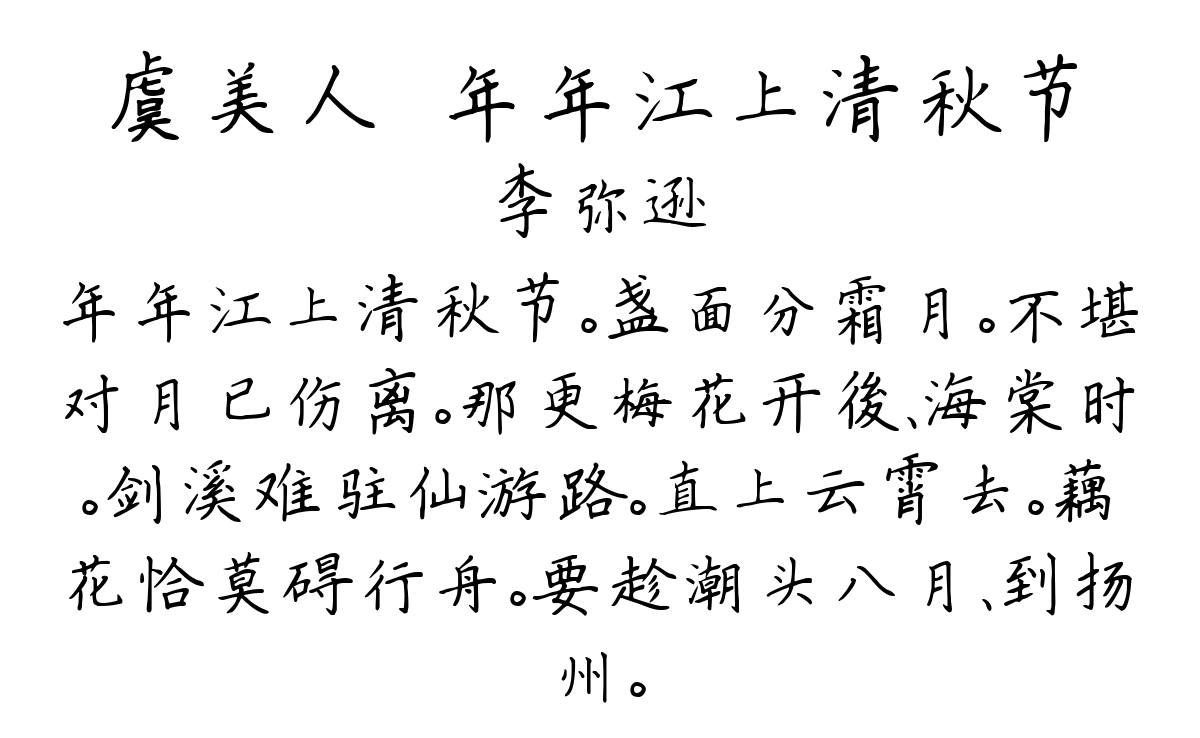 虞美人 年年江上清秋节
李弥逊
年年江上清秋节。盏面分霜月。不堪
对月已伤离。那更梅花开後、海棠时
。剑溪难驻仙游路。直上云霄去。藕
花恰莫碍行舟。要趁潮头八月、到扬
州。